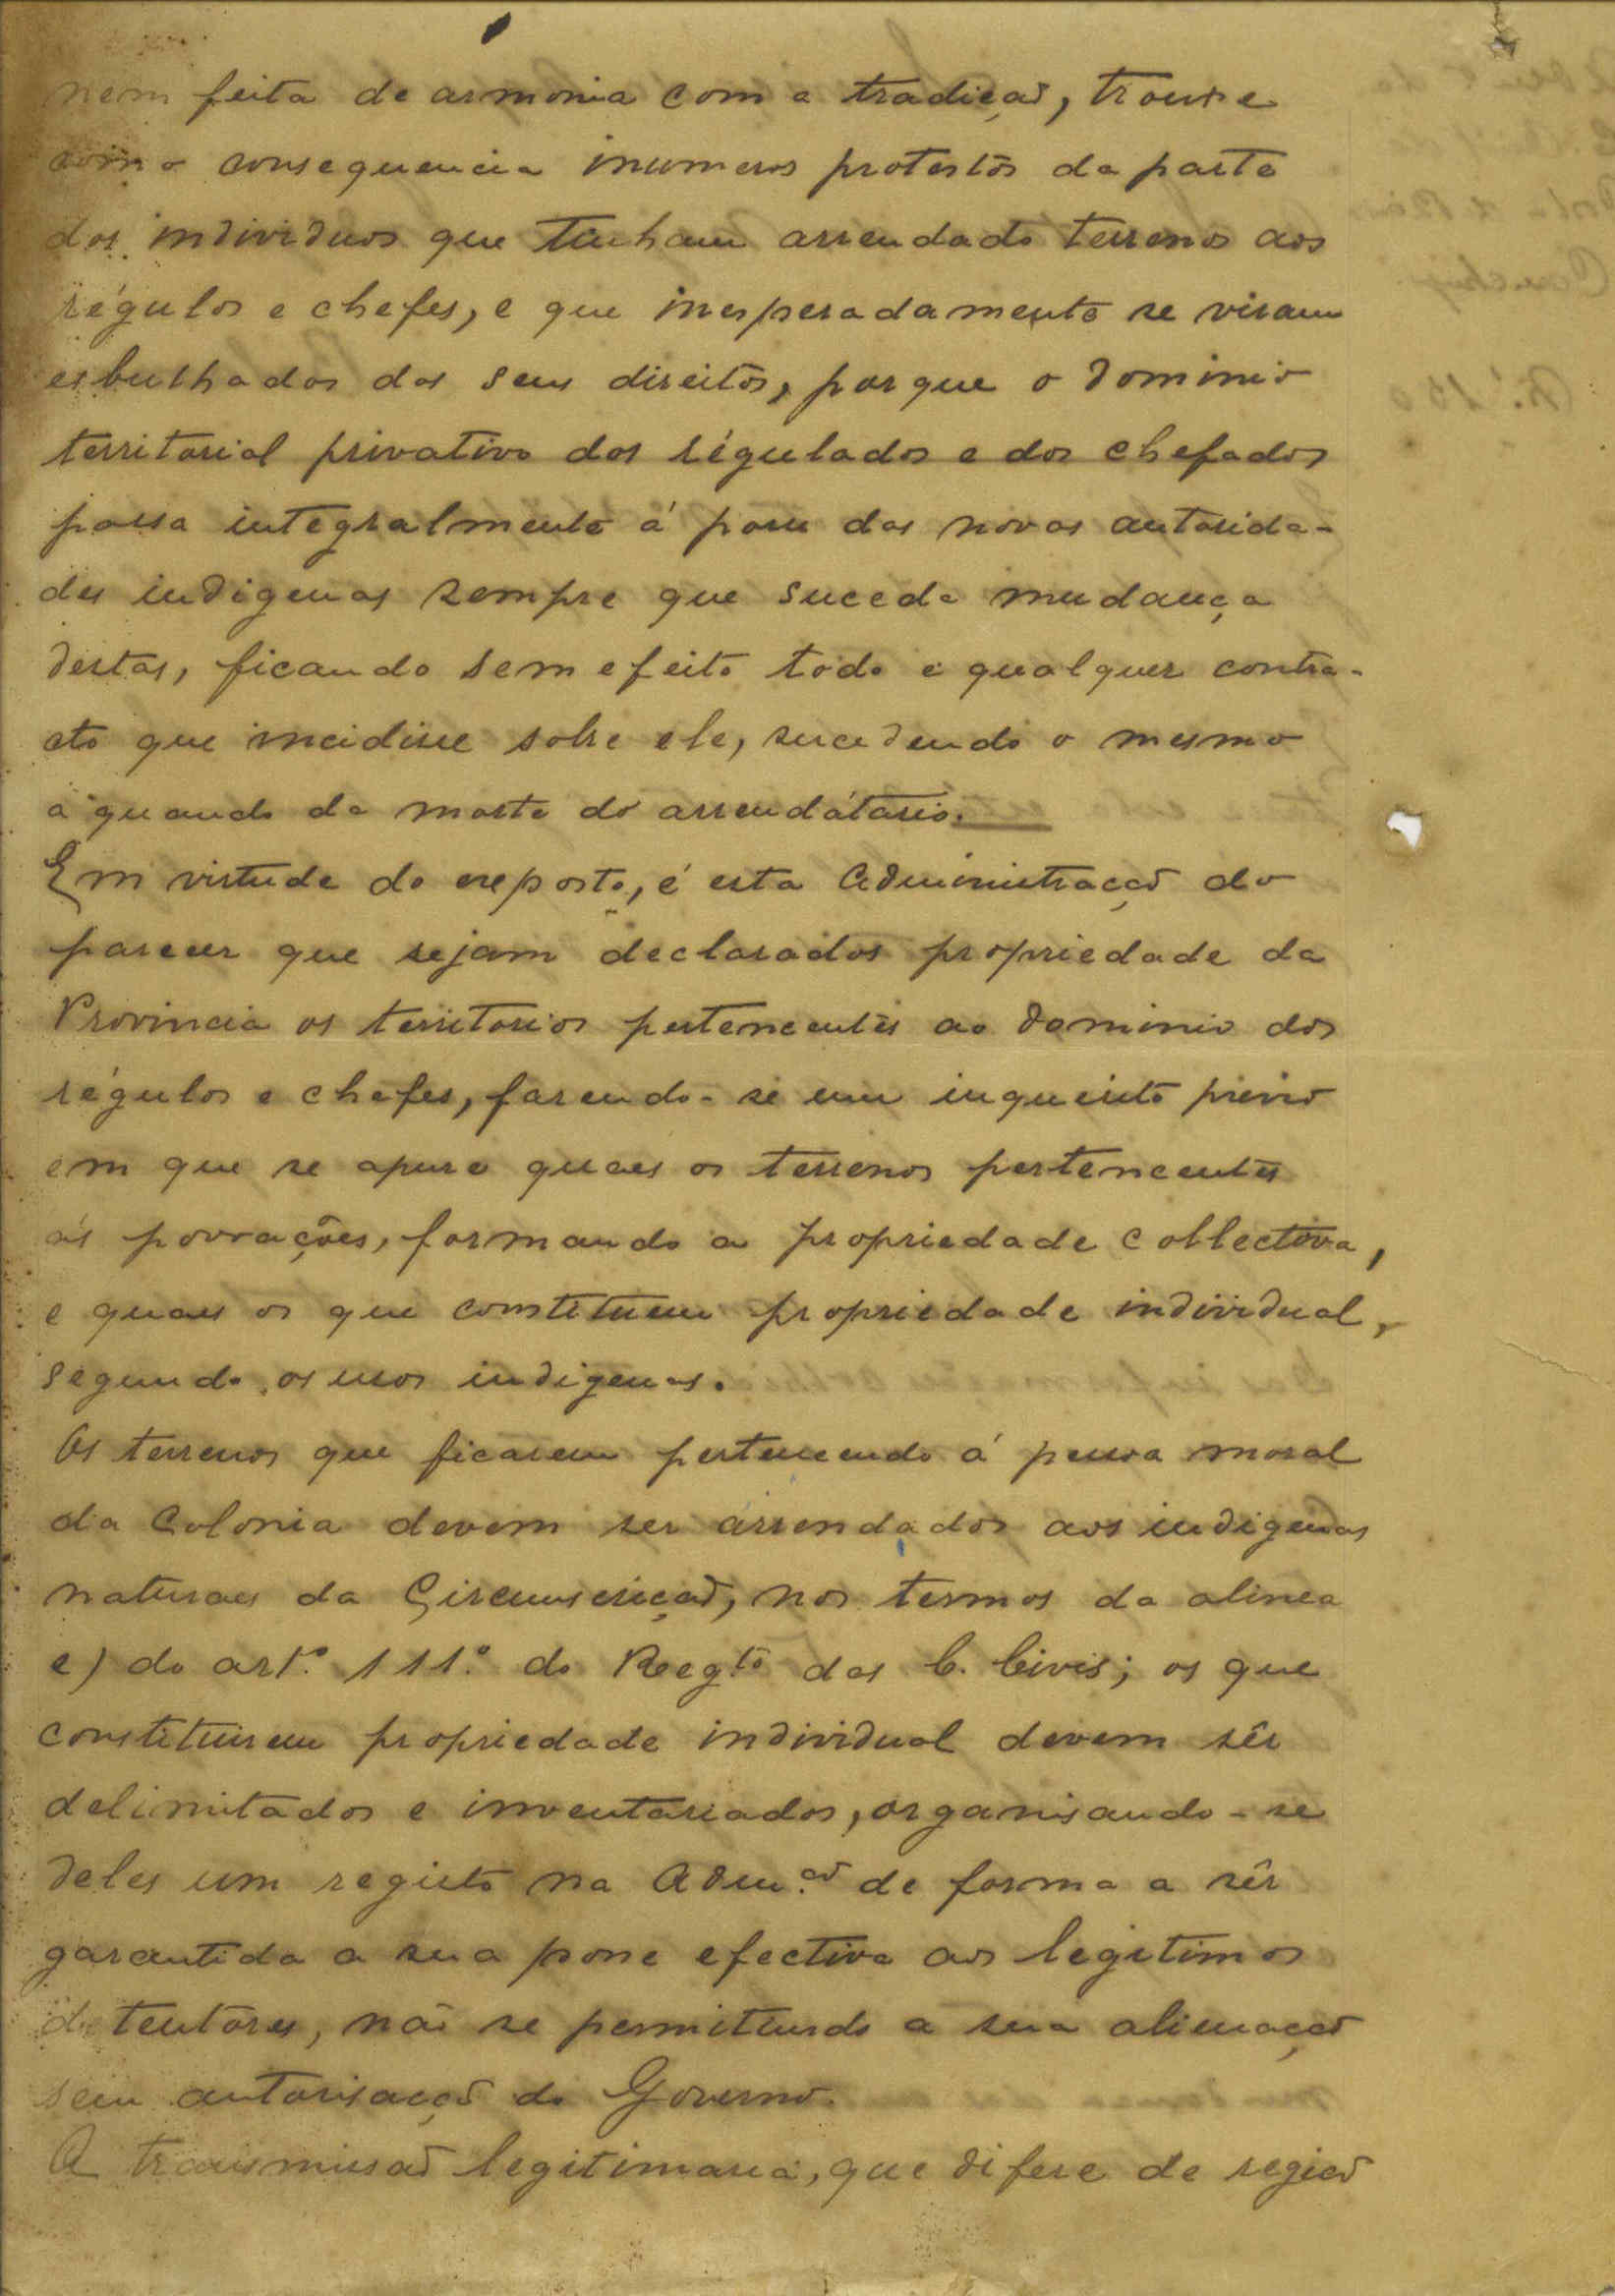 nem feita de armonia com a tradição, trouxe
como consequencia inumeros protestos da parte
dos individuos que tinham arrendado terrenos aos
régulos e chefes, e que inesperadamente se viram
esbulhados dos seus direitos, porque o dominio
territorial privativo dos régulados e dos chefados
passa integralmente á posse das novas autorida-
des indigenas sempre que suceda mudança
destas, ficando sem efeito todo e qualquer contra-
cto que incidisse sobre ele, sucedendo o mesmo
a quando da morte do arrendátario.
Em virtude do exposto, é esta Administração do
parecer que sejam declarados propriedade da
Provincia os territorios pertencentes ao dominio dos
régulos e chefes, fazendo-se um inquerito previo
em que se apure quaes os terrenos pertencentes
ás povoações, formando a propriedade collectiva,
e quaes os que constituem propriedade individual,
segundo os usos indigenas.
Os terrenos que ficarem pertencendo á pessoa moral
da Colonia devem ser arrendados aos indigenas
naturaes da Circunscrição, nos termos da alinea
e) do artº. 111º. do Regtº das C. Civis; os que
constituirem propriedade individual devem sêr
delimitados e inventariados, organisando-se
deles um registo na Adm.ão de forma a sêr
garantida a sua posse efectiva aos legitimos
detentores, não se permitindo a sua alienação
sem autorisação do Governo.
A transmissão legitimaria, que difere de região